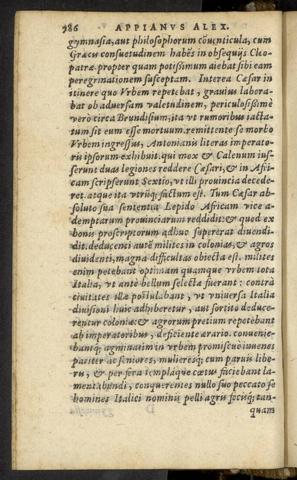 986 APPIANVS ALEX.
gymnasia, aut philosophorum cōuenticula, cum
Græcis consuetudinem habēs in obsequijs Cleo-
patræ propter quam potissimum aiebat sibi eam
peregrinationem susceptam. Interea Cæsar in
itinere quo Vrbem repetebat, grauius labora-
bat ob aduersam valetudinem, periculosissimè
verò circa Brundisium, ita vt rumoribus iacta-
tum sit eum esse mortuum. remittente se morbo
Vrbem ingressus, Antonianis literas imperato-
ris ipsorum exhibuit. qui mox & Calenum ius-
serunt duas legiones reddere Cæsari, & in Afri-
cam scripserunt Sextio, vt illi prouincia decede-
ret. atque ita vtriq; factum est. Tum Cæsar ab-
soluto sua sententia Lepido Africam vice a-
demptarum prouinciarum reddidit: & quod ex
bonis proscriptorum adhuc supererat diuendi-
dit. deducenti autē milites in colonias, & agros
diuidenti, magna difficultas obiecta est. milites
enim petebant optimam quamque vrbem tota
Italia, vt ante bellum selectæ fuerant: contrà
ciuitates illæ postulabant, vt vniuersa Italia
diuisioni huic adhiberetur, aut sortitò deduce-
rentur coloniæ: & agrorum pretium repetebant
ab imperatoribus, deficiente ærario. conuenie-
bantq; agminatim in vrbem promiscuè iuuenes
pariter ac seniores, mulieresq; cum paruis libe-
ris, & per fora templáque cœtus faciebant la-
mentabundi, conquerentes nullo suo peccato se
homines Italici nominis pelli agris focisq; tan-
quam